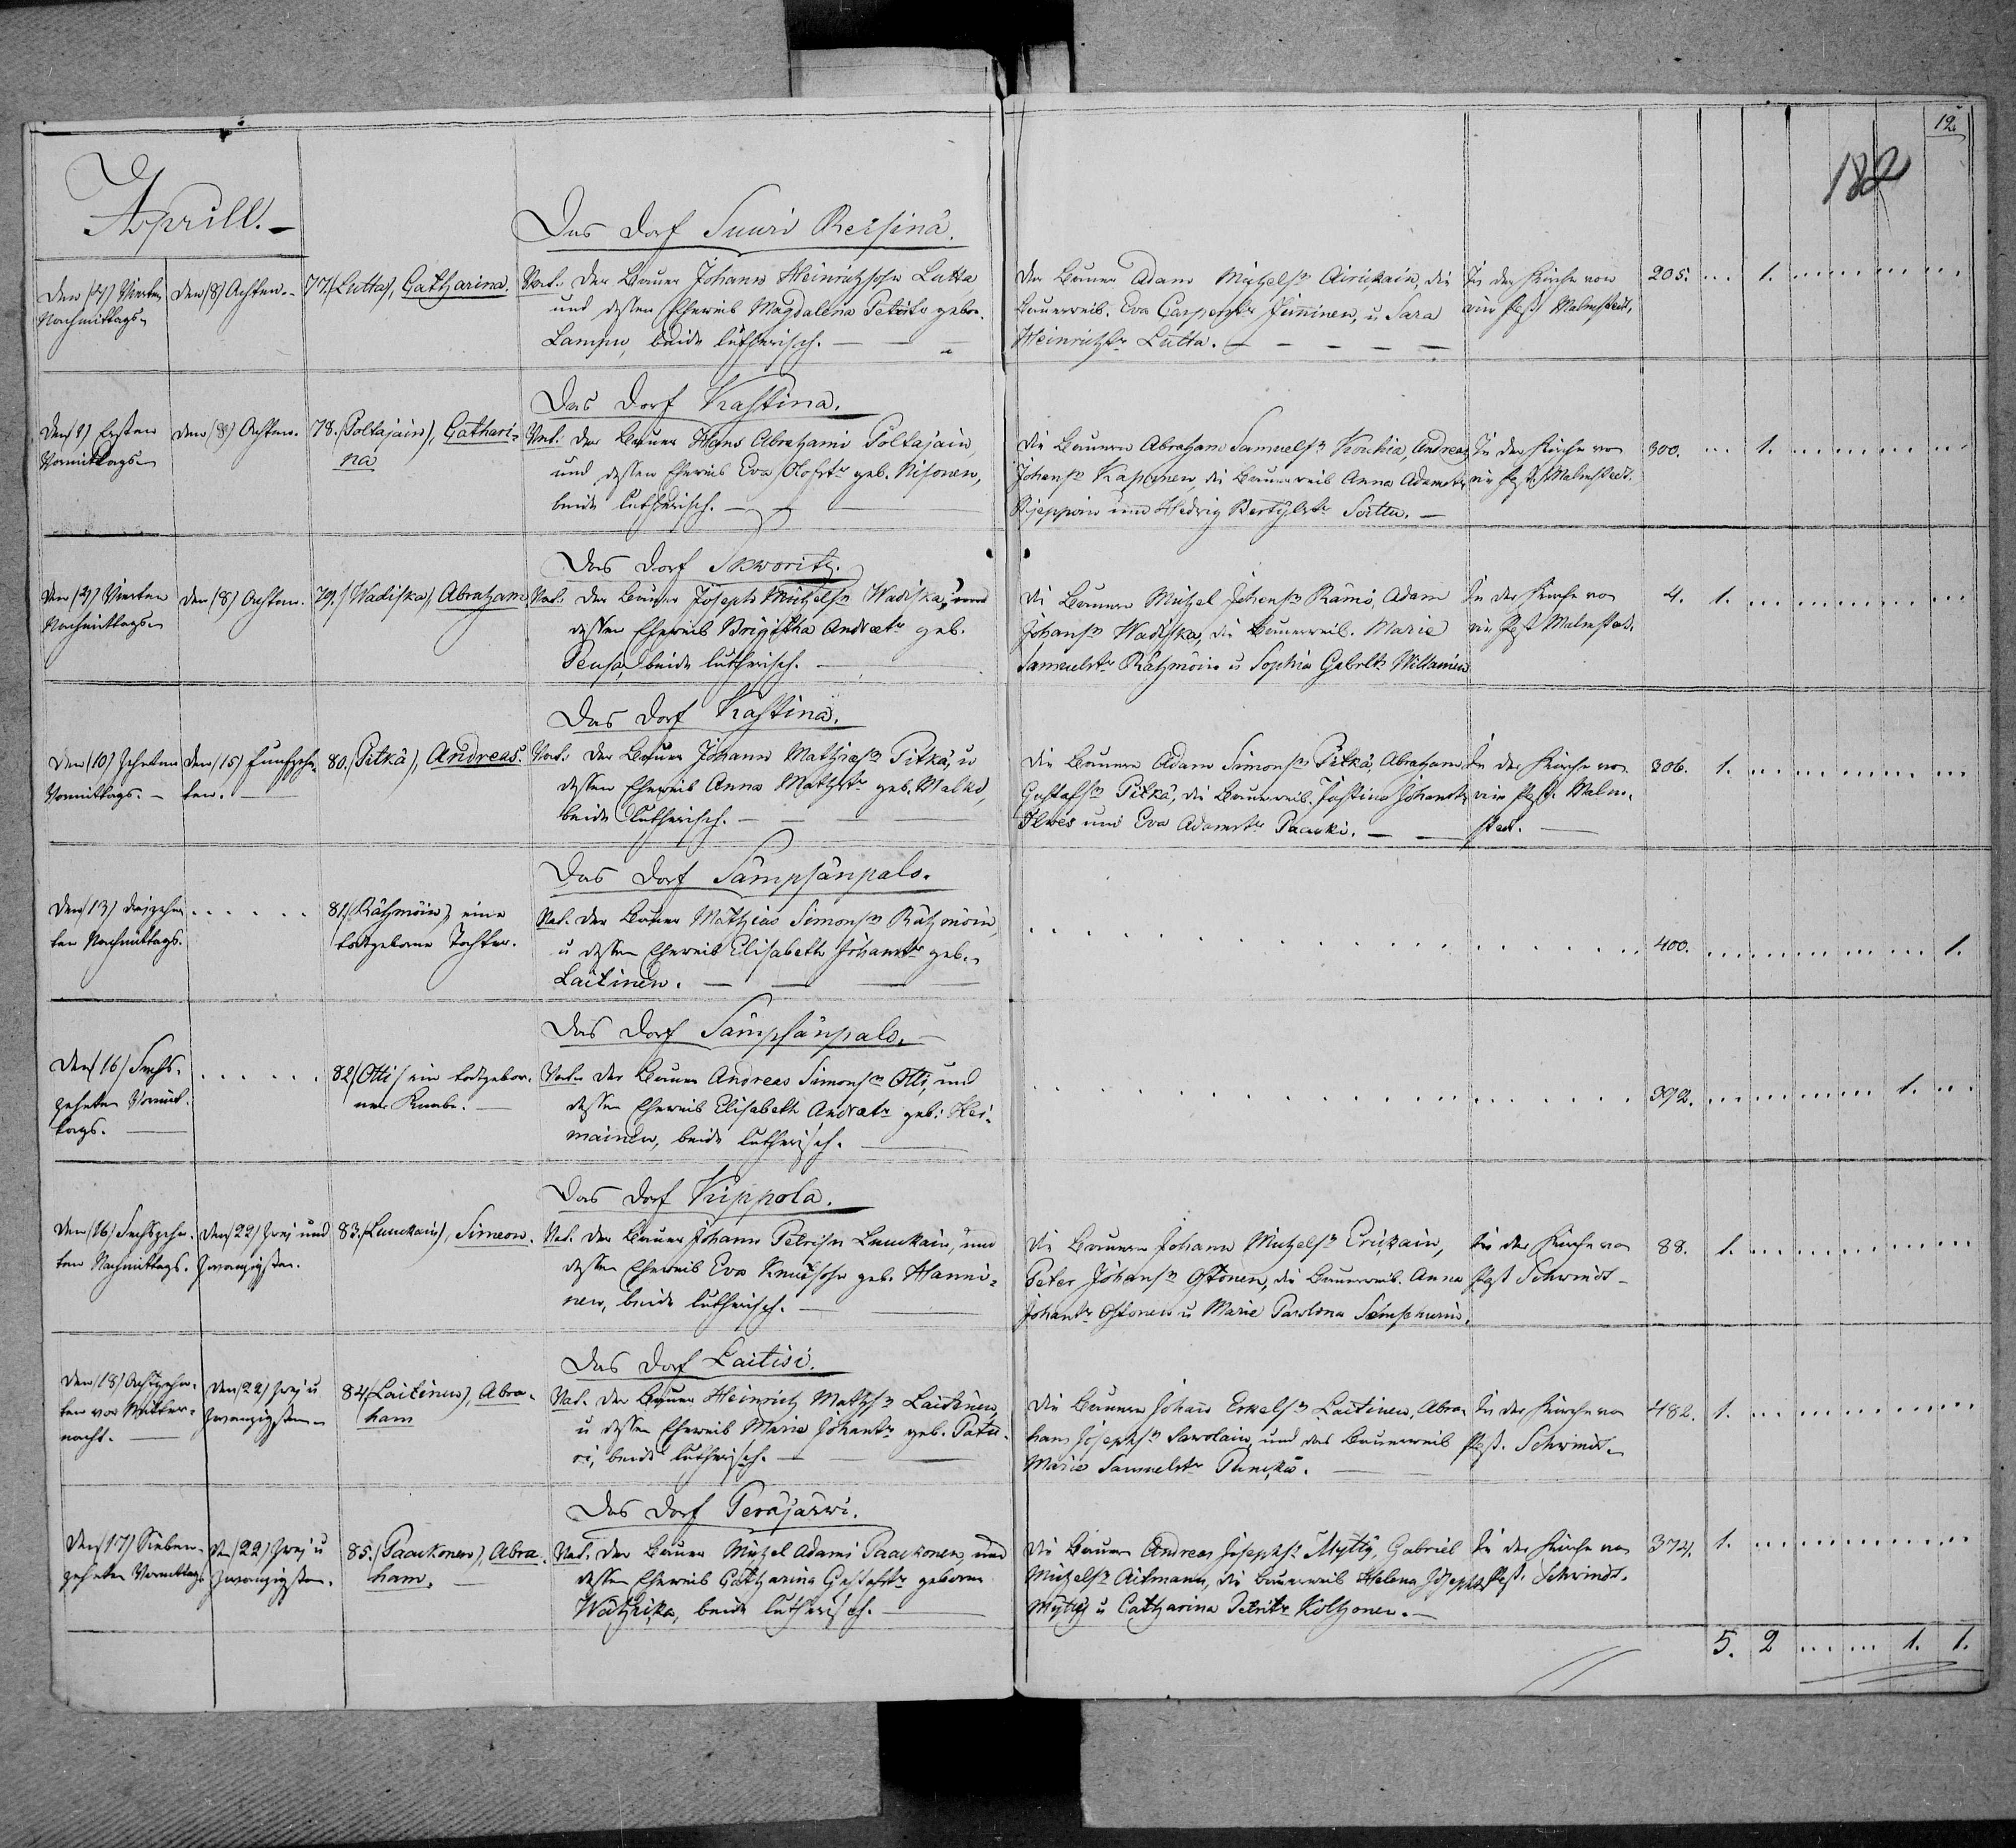 12.
182
Aprill.
Das Dorf Suuri Reisinä.
Den (4) Vierten
Nachmittags
Den (8) Achten.
77. (Lutta), Catharina.
Vat. der Bauer Johann Heinrichsohn Lutta
und dessen Eheweib Magdalena Petris gebor.
beide lutherisch.
der Bauer Adam Michels. Airikain, die
Bauerweib. Eva Casperstr. u Sara
Heinrichstr. Lutta.
In der Kirche von
mir Past. Malmstedt.
205. 1.
Das Dorf Kastina.
Den (1) Ersten
Vormittags
Den (8) Achten.
78. (Poltajain), Cathari-
na
Vat. der Bauer Hans Abrahams Poltajain,
und dessen Eheweib Eva Olofstr. geb. Nisonen,
beide lutherisch.
Die Bauern Abraham Samuels. Koukia, Andreas
Johans. Kaponen, die Bauerweib Anna Adamstr.
und Hedvig
In der Kirche von
mir Past. Malmstedt.
300. 1.
Das Dorf Skworitz.
Den (4) Vierten
Nachmittags
Den (8) Achten.
79. (Wadiska), Abraham
Vat. der Bauer Joseph Michels. Wadiska, und
dessen Eheweib Brigitha Andrstr. geb.
beide lutherisch.
Die Bauern Michel Johans. Rämö, Adam
Johans. Wadiska, die Bauerweib. Maria
Samuelstr. Rähmöin u Sophia Gabrlstr. Willainen
In der Kirche von
mir Past Malmstedt.
4. 1.
Das Dorf Kastina.
Den (10) Zehnten
Vormittags.
Den (15) Funfzehn-
ten.
80. (Pitkä), Andreas.
Vat. der Bauer Johann Mathias. Pitkä, u
dessen Eheweib Anna Mathstr. geb. Malko,
beide lutherisch.
Die Bauern Adam Simons. Pitkä, Abraham
Gustafs. Pitkä, die Bauerweib. Justina Johanstr.
Ilwes und Eva Adamstr. Paaski.
In der Kirche von
mir Past. Malm-
stedt.
306. 1.
Das Dorf Sämpsänpalo.
Den (13) Dreizehn-
ten Nachmittags.
81. (Rähmöin), eine
todtgeborne Tochter.
Vat. der Bauer Mathias Simons. Rähmöin,
u dessen Eheweib Elisabeth Johanstr. geb.
Laitinen.
400. 1.
Das Dorf Sämpsänpalo.
Den (16) Sechs-
zehnten Vormit-
tags.
82. (Otti) ein todtgebor-
ner Knabe.
Vat. der Bauer Andreas Simons. Otti, und
dessen Eheweib Elisabeth Andrstr. geb. Hei-
mainen, beide lutherisch.
392. 1.
Das Dorf Kippola.
Den (16) Sechszehn-
ten Nachmittags.
Den (22) Zwei und
Zwanzigsten.
83. (Lumkain), Simeon.
Vat. der Bauer Johann Petrisn Lumkain, und
dessen Eheweib Eva Knutsohn geb. Hanni-
nen, beide lutherisch.
Die Bauern Johann Michels. Erikain,
Peter Johans. Ostonen, die Bauerweib. Anna
Johanstr. Ostonen u Maria Paulina
In der Kirche von
Past Schwindt
88. 1.
Das Dorf Laitisi.
Den (18) Achtzehn-
ten vor Mitter-
nacht.
Den (22) Zwei u
Zwanzigsten
84. (Laitinen), Abra-
ham
Vat. der Bauer Heinrich Maths. Laitinen,
u dessen Eheweib Maria Johanstr. geb. Patu-
ri, beide lutherisch.
Die Bauern Johan Erkels. Laitinen, Abra-
ham Josephs. Sawolain, und das Bauerweib
Maria Samuelstr.
In der Kirche von
Past. Schwindt.
482. 1.
Das Dorf Peräjärwi.
Den (17) Sieben-
zehnten Vormittags
Den (22) Zwei u
Zwanzigsten.
85. (Paakkonen), Abra-
ham.
Vat. der Bauer Michel Adams Paakkonen, und
dessen Eheweib Catharina Gustafstr. geborne
Wäthika, beide lutherisch.
Die Bauern Andreas Josephs. Mytty, Gabriel
Michels. Äitmann, die Bauerweib Helena Josephstr.
Mytty u Catharina Petristr. Kolhonen.
In der Kirche von
Past. Schwindt.
374. 1.
5. 2 1. 1.